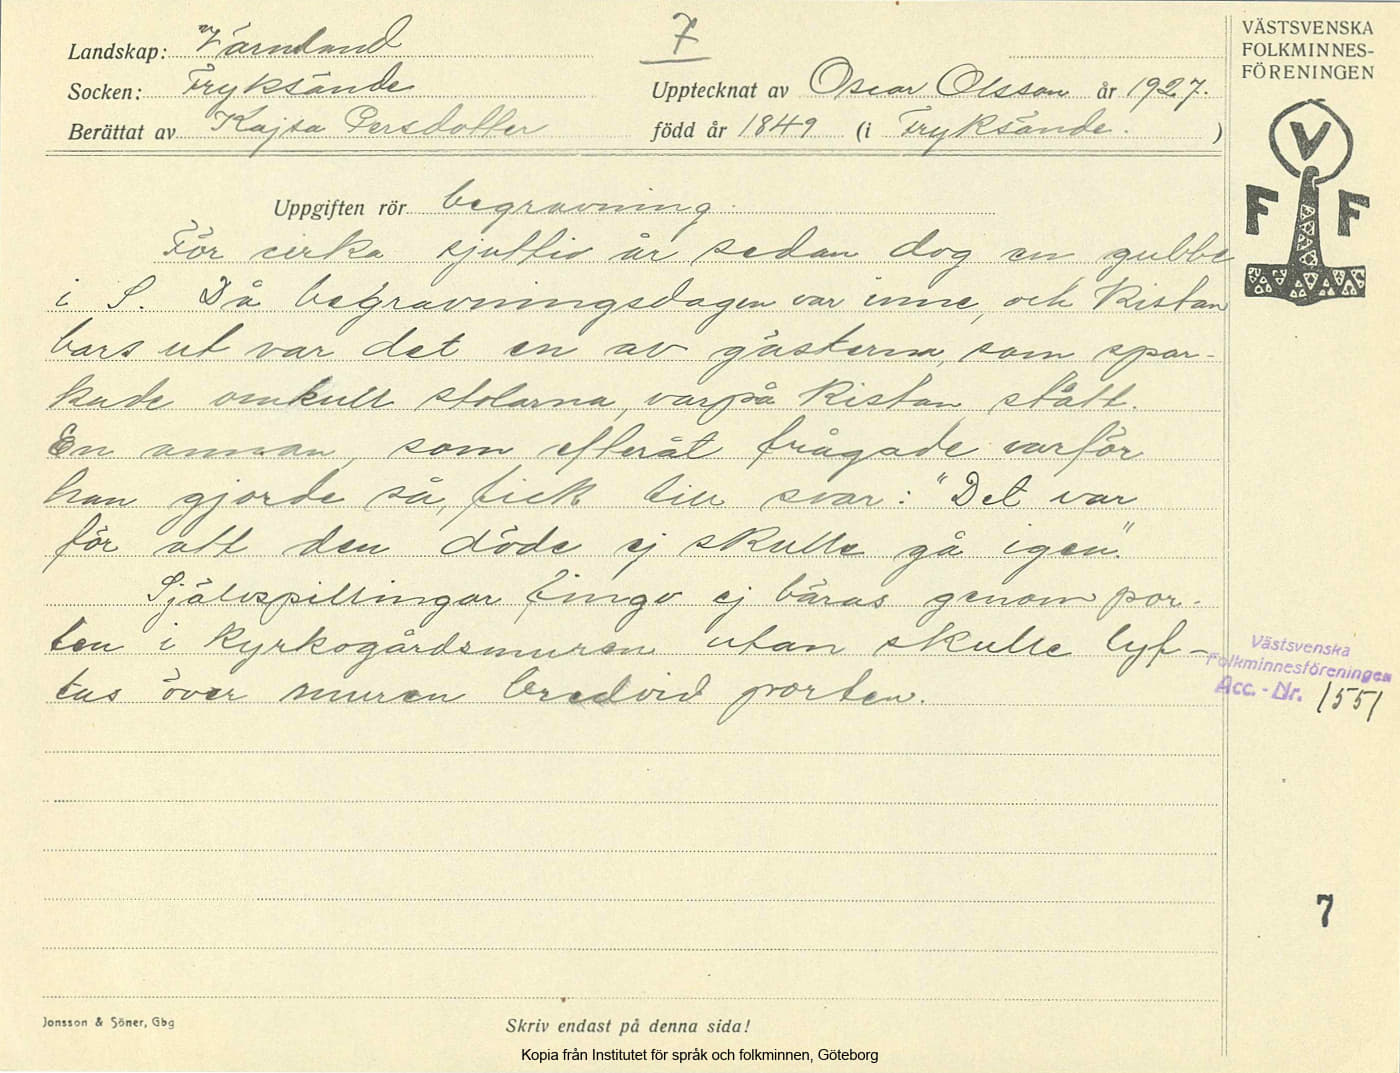 Landskap: Värmland
7
Socken: Fryksände
Upptecknat av Oscar Olsson år 1927.
Berättat av Kajsa Persdotter
född år 1849 (i Fryksände. )
VÄSTSVENSKA
FOLKMINNES-
FÖRENINGEN
V
F F
Uppgiften rör begravning.
För cirka sjuttio år sedan dog en gubbe
i S. Då begravningsdagen var inne, och kistan
bars ut var det en av gästerna, som spar-
kade omkull stolarna, varpå kistan stått.
En annan, som efteråt frågade varför
han gjorde så, fick till svar: "Det var
för att den döde ej skulle gå igen".
Självspillingar fingo ej bäras genom por-
ten i kyrkogårdsmuren utan skulle lyf-
tas över muren bredvid porten.
Västsvenska
Folkminnesföreningen
Acc.-Nr. 1551
7
Jonsson & Söner, Gbg
Skriv endast på denna sida!
Kopia från Institutet för språk och folkminnen, Göteborg